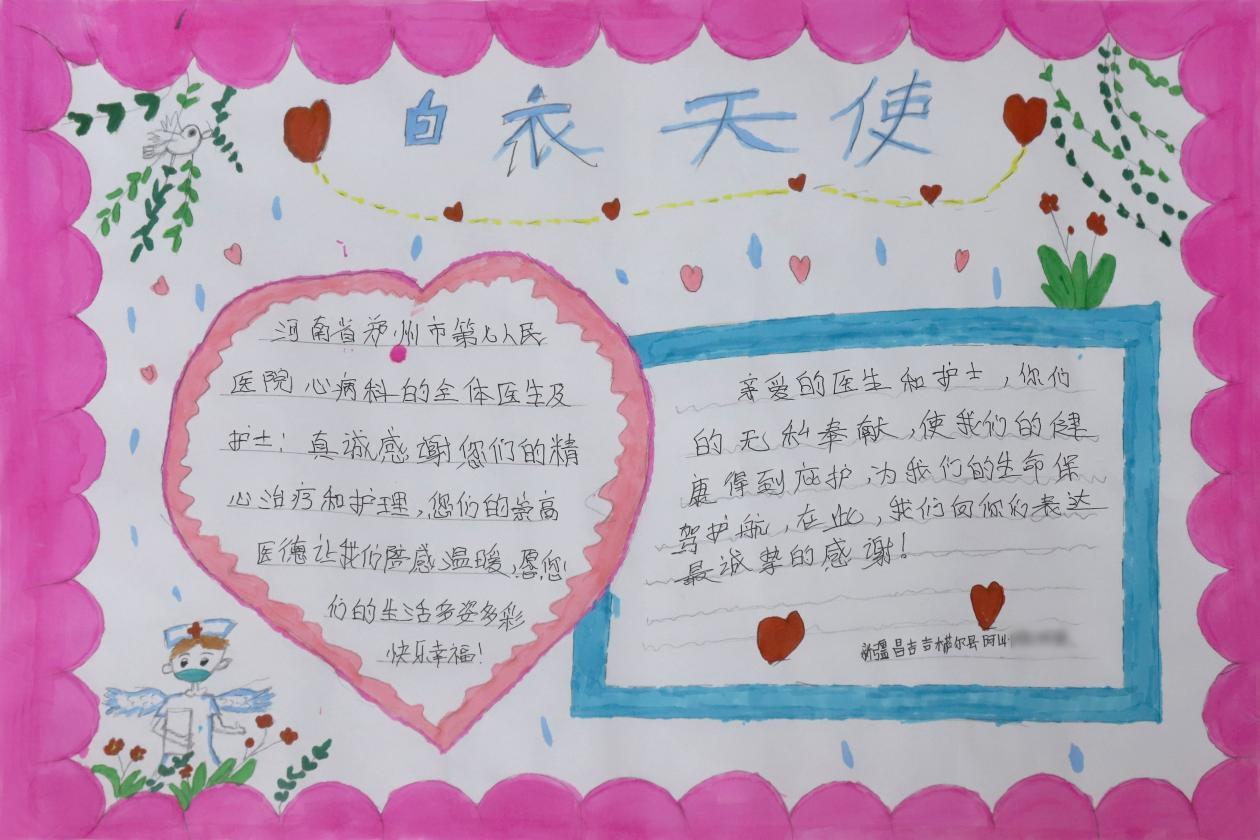 白衣天使
河南省郑州市第七人民
医院心病科的全体医生及
护士：真诚感谢您们的精
心治疗和护理，您们的崇高
医德让我们陪感温暖，愿您
们的生活多姿多彩
快乐幸福！
亲爱的医生和护士，你们
的无私奉献，使我们的健
康得到庇护，为我们的生命保
驾护航，在此，我们向你们表达
最诚挚的感谢！
新疆昌吉吉木萨尔县阿山